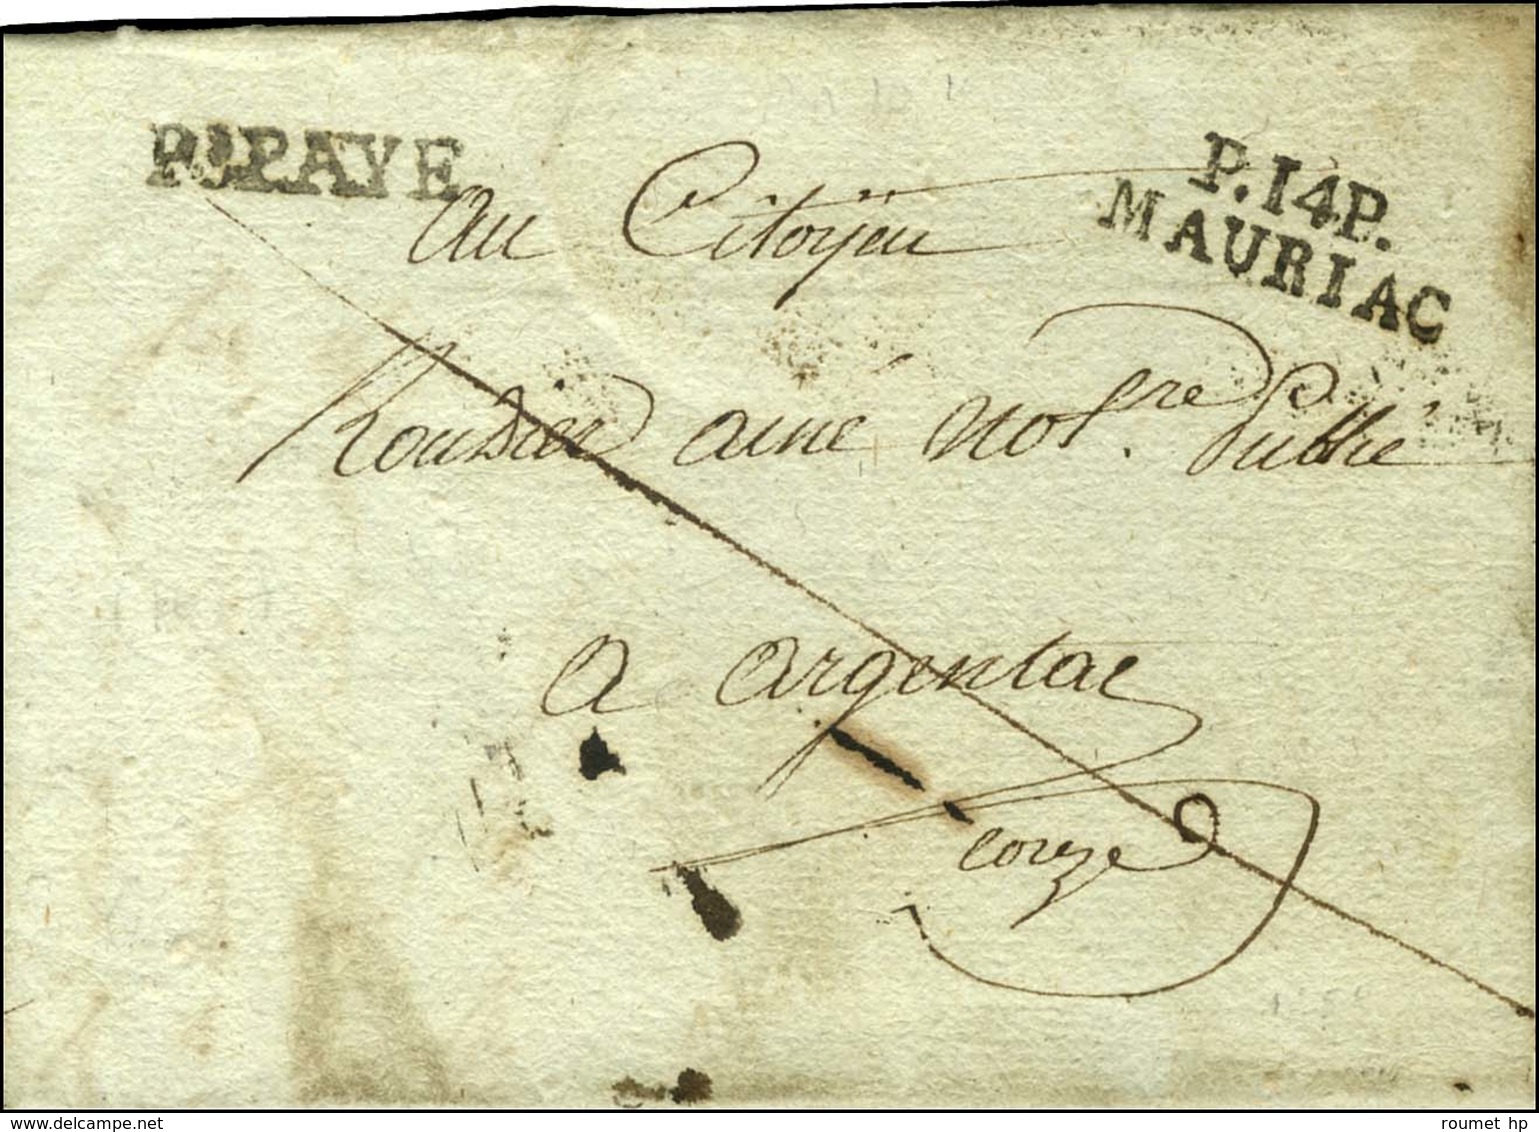 Pt PAYE
P.14P.
MAURIAC
Au Citoyen
Roudier ainé Notre. Public
a argentac
correze
roumet hp